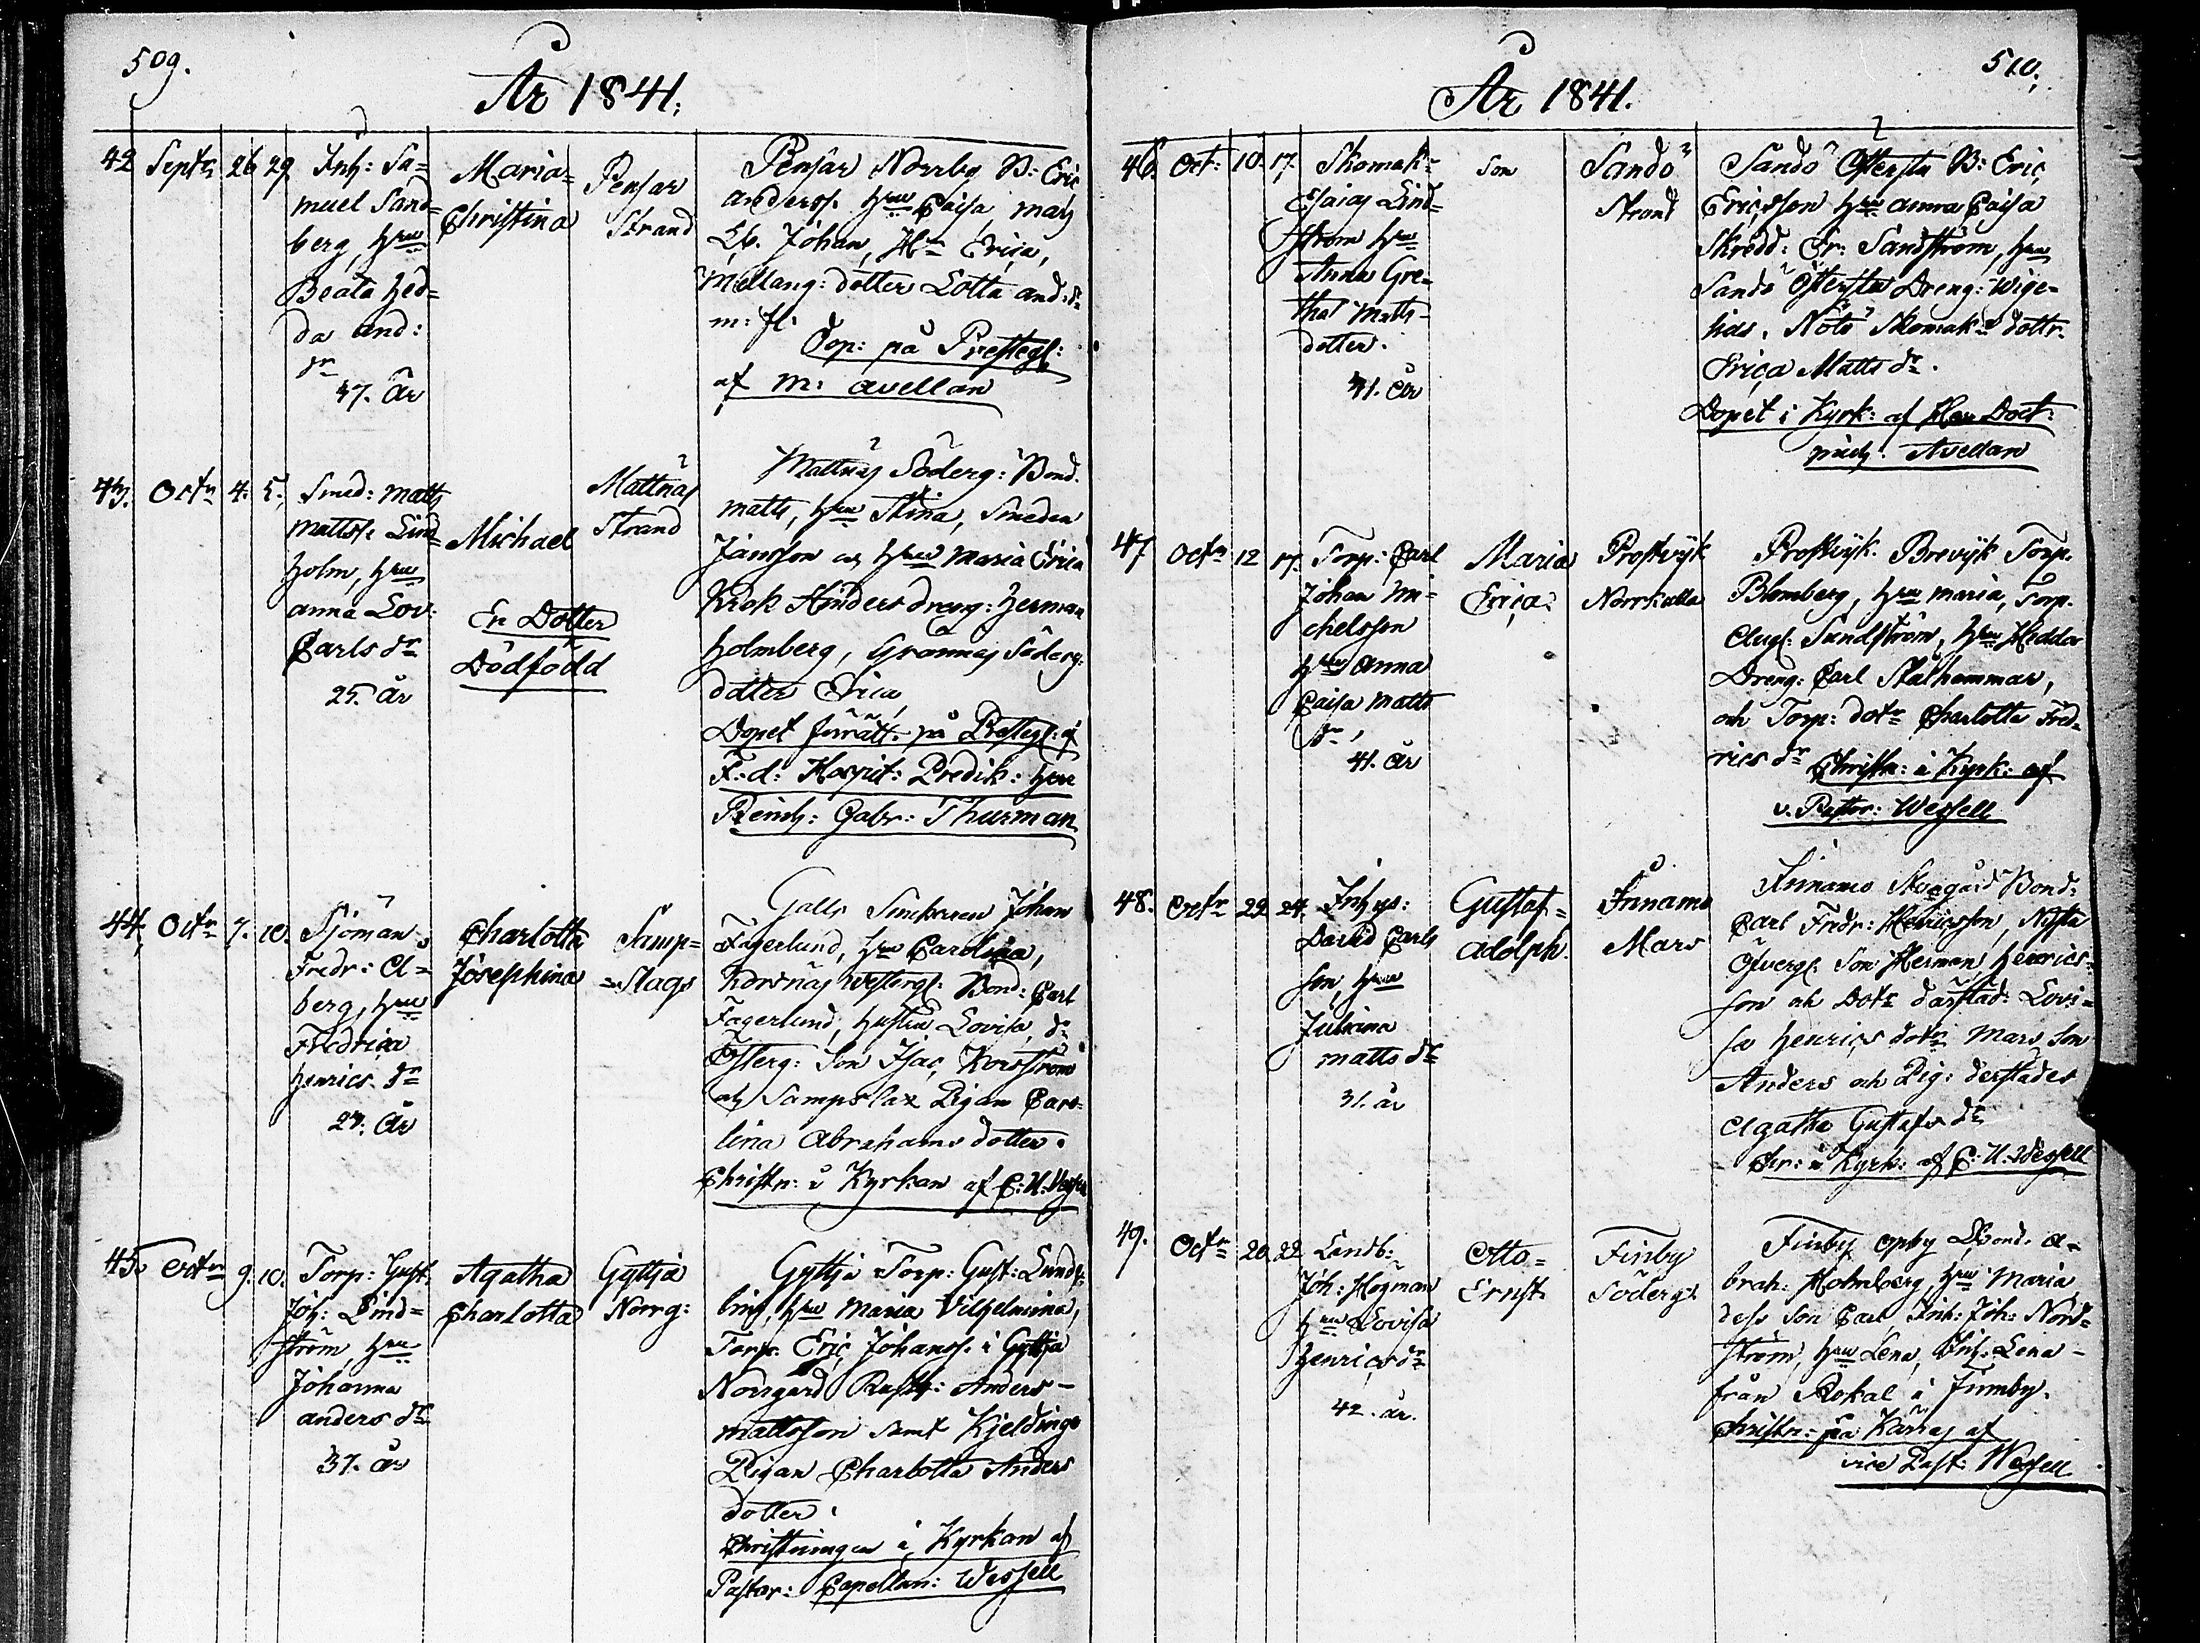 509.
År 1841.
42 Septr 26 29 Inh: Sa=
muel Sand=
berg, hru
Beata Hed=
da And:
dr
37. År
Maria=
Christina
Pensar
Strand
Pensar Norrby B: Eric
Anderss. hru Caisa, Mats
Johan, Hu Erica,
Mellang: dotter Lotta And: dr
m: fl.
Döp: på Prestegl:
af M: Avellan
43. Octr 4. 5. Smed: Matts
Mattss: Lind=
holm, hru
Anna Lov:
Carls dr
25. År
Michael
En Dotter
Dödfödd
Mattnäs
Strand
Mattnäs Söderg: Bond.
Matts, hru Stina, Smeden
Jansson och hru Maria Erica
Krok Hinders dreng: Herman
Holmberg, Grännäs Söderg:
dotter Erica,
Dopet förrätt. på Prestegl: af
F. d: Hospit: Predik: Herr
Reinh: Gabr: Thurman
44. Octr 7. 10. Sjöman
Fredr: Å=
berg, hru
Fredrica
Henrics dr
27. År
Charlotta
Josephina
Samp=
=slags
Galls Simkersen Johan
Fagerlund, hru Carolina,
Korsnäs Westergl. Bond: Carl
Fagerlund, hustru Lovisa, dr
Österg: Son Isac Korsström
och Sampslax Pigan Caro=
lina Abrahams dotter.
Christn: i Kyrkan af C: U: Wessell
45. Octr 9. 10. Torp: Gust.
Joh: Lind=
ström, hru
Johanna
Anders dr
37. År
Agatha
Charlotta
Gyttja
Norrg:
Gyttja Torp: Gust: Lund=
bing, hru Maria Vilhelmina,
Torp. Eric Johanss. i Gyttja
Norrgård Rusth: Anders
Mattsson samt Kjeldinge
Pigan Charlotta Anders
dotter.
Christningen i Kyrkan af
Pastor: Capellan: Wessell
510.
År 1841.
46. Oct: 10. 17. Skomak=
Esaias Lind=
ström hru
Anna Gre=
tha Matts
dotter.
31. År
Son
Sandö
Strand
Sandö Östersta B: Eric
Ericsson hru Anna Caisa
Skredd: Er: Sandström, hru
Sandö Östersta Dreng: Wige=
lius, Nötö Skomak: dottr.
Erica Matts dr.
Dopet i Kyrk: af Herr Doct:
Mich. Avellan
47 Octr 12 17. Torp: Carl
Johan Mi=
chelsson
hru Anna
Caisa Matts
dr,
41. År
Maria
Erica
Prostvik
Norrkulla
Prostvik. Brevik Torp.
Blomberg, hru Maria, Torp.
Aug: Sundström, hru Hedda
Dreng: Carl Stålhammar,
och Torp: dotr Charlotta Fred=
rics dr Christn: i Kyrk: af
v. Pastor: Wessell
48. Octr 22 24. Inhys:
David Carls
son, hru
Juliana
Matts dr
31. år
Gustaf=
Adolph
Innamo
Mars
Innamo Storgård Bond:
Carl Fredr: Henricsson, Nysta
Öfvergl. Son Herman Henrics=
son och Dotr därstäd: Lovi=
sa Henrics dotr Mars Son
Anders och Pig: derstädes
Agatha Gustafs dr
Chr: i Kyrk: af C: U: Wessell
49. Octr 20. 22. Landb:
Joh: Högman
hru Lovisa
Henrics dr
42. år.
Otto=
Ernst
Finby
Söderg:
Finby Opby Bond. A=
brah: Holmberg, hru Maria
dess Son Carl Inh: Joh: Nord=
ström, hru Lena, Inh: Lena
från Rokal i Finnby.
Christn: på Karnas af
vice Past: Wessell